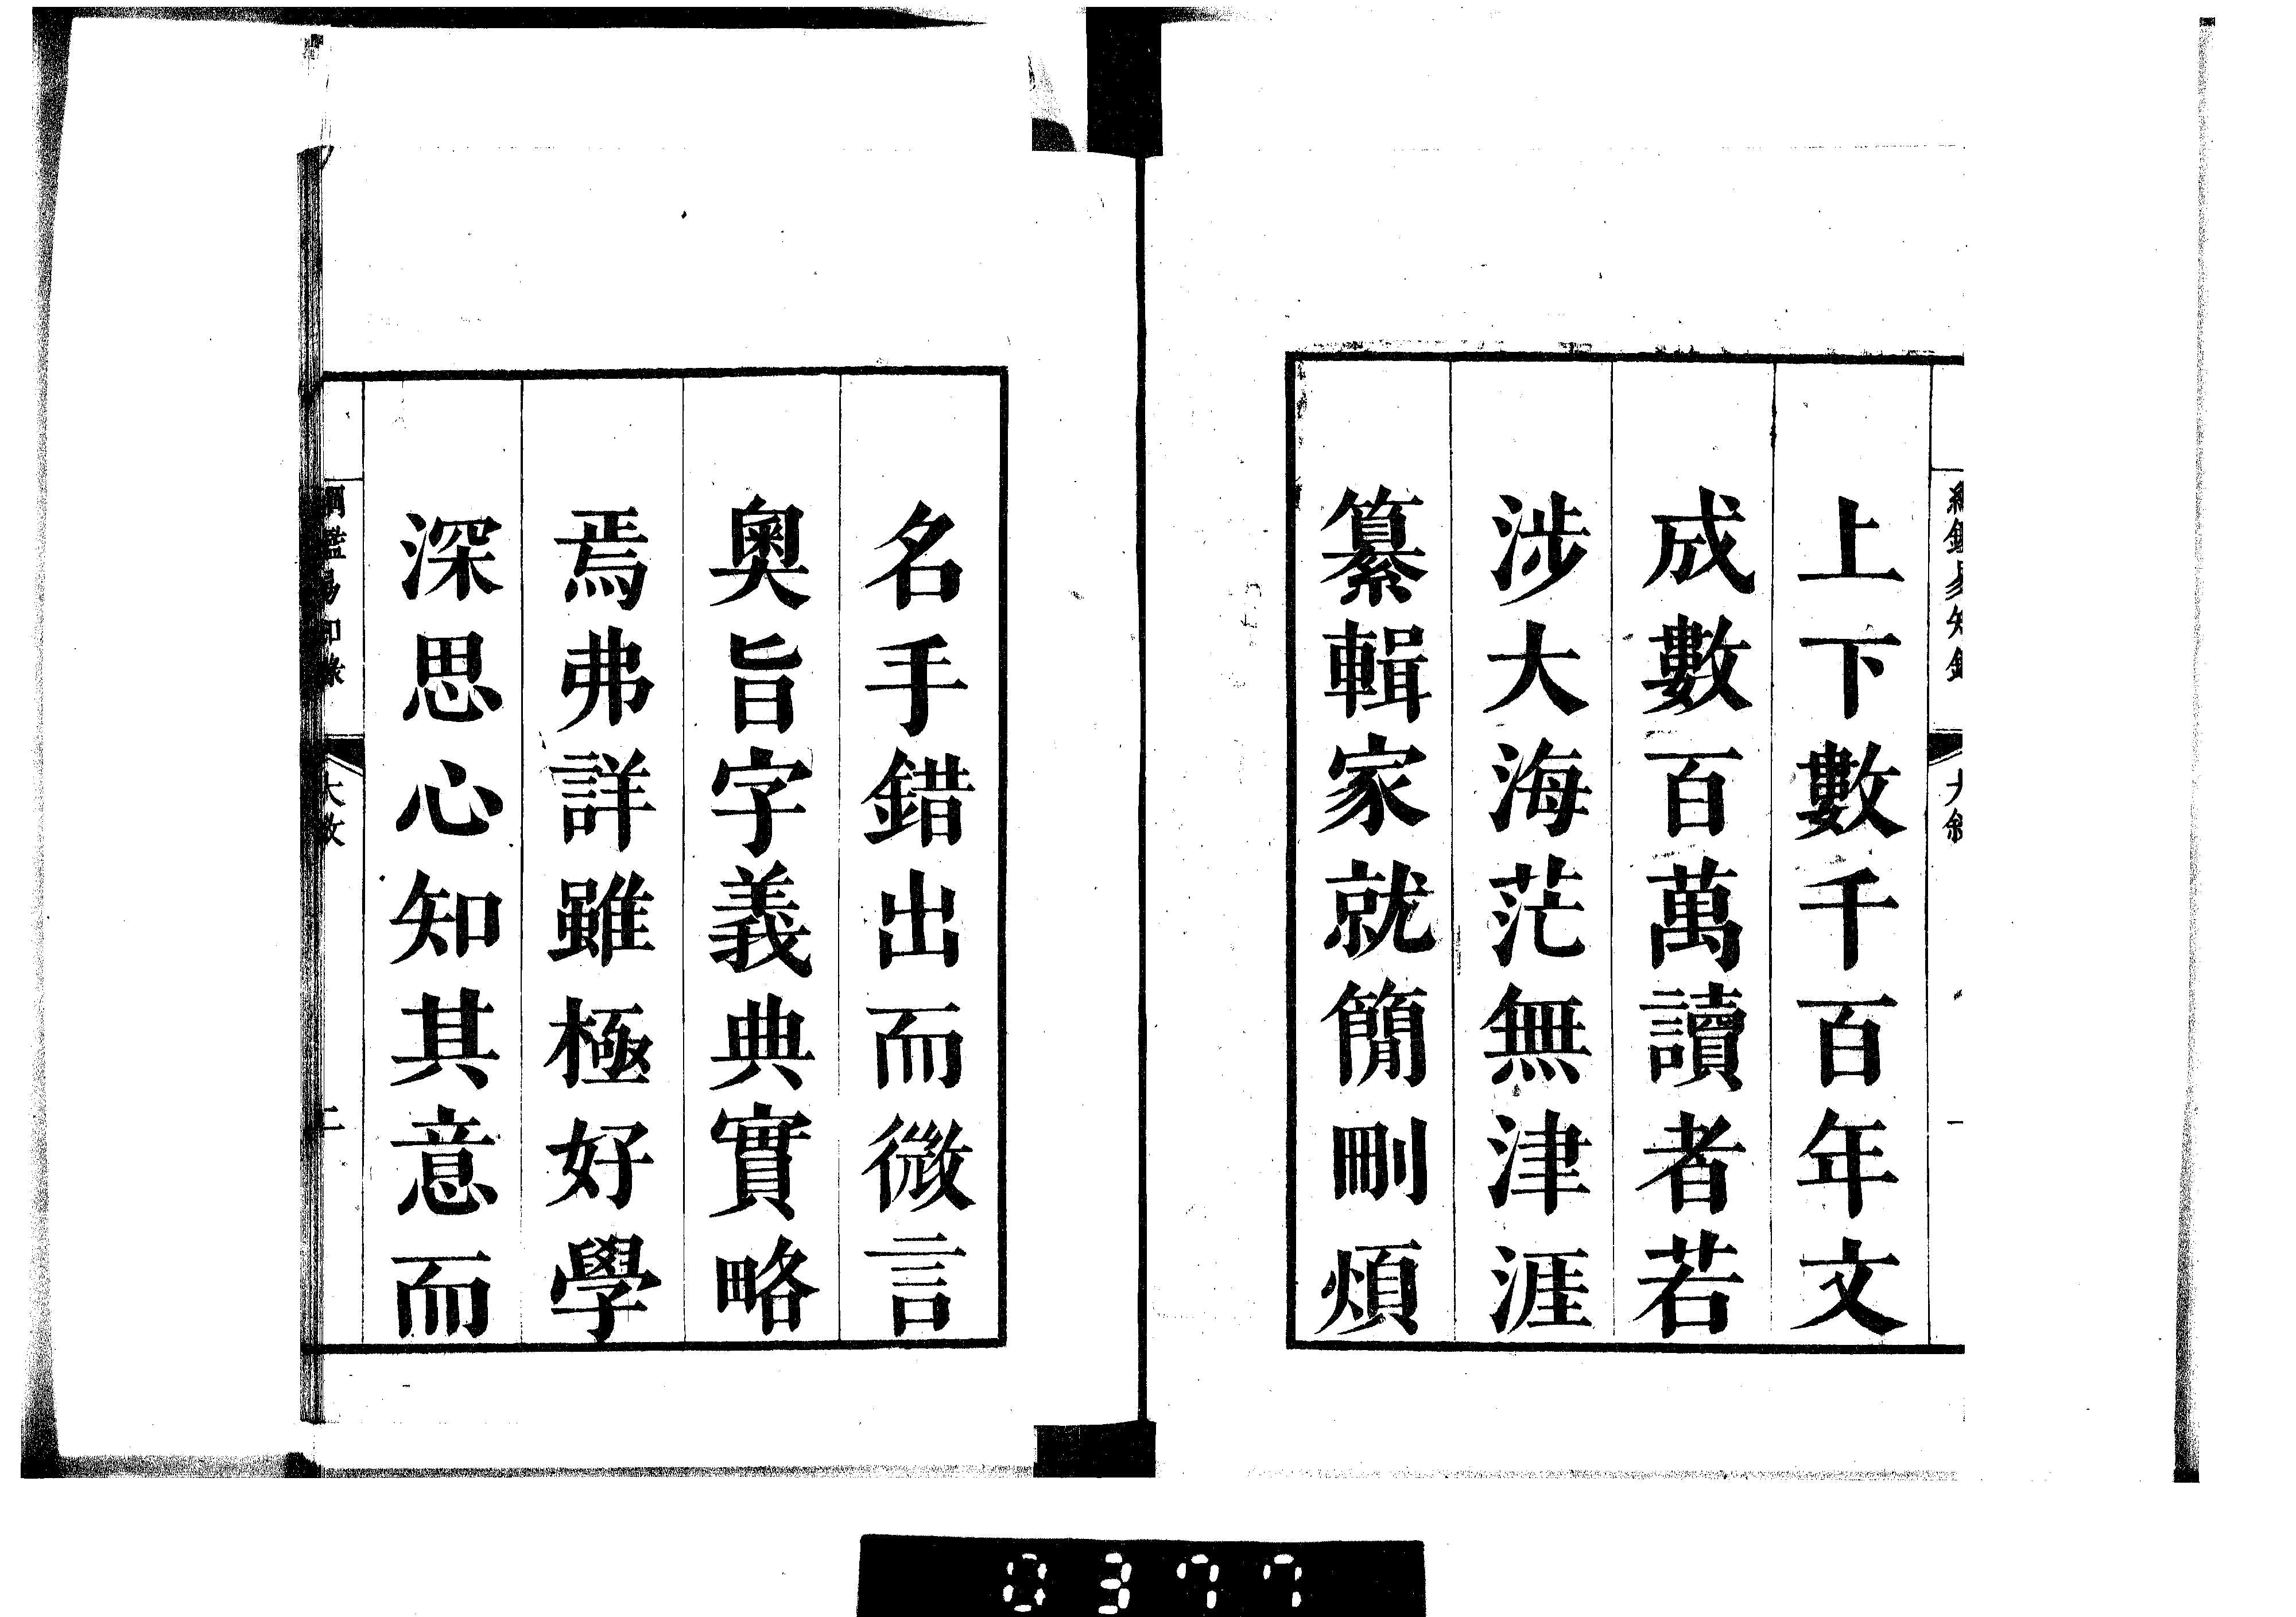 綱鑑易知錄 大敘 一
上下數千百年文
成數百萬讀者若
涉大海茫無津涯
纂輯家就簡刪煩
名手錯出而微言
奧旨字義典實略
焉弗詳雖極好學
深思心知其意而
綱鑑易知錄 大敘 二
0377